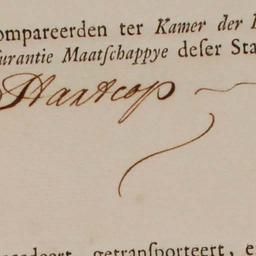 ompareerden ter Kamer der
urantie Maatſchappye deſer Sta
Hartcop
getranſporteert, e